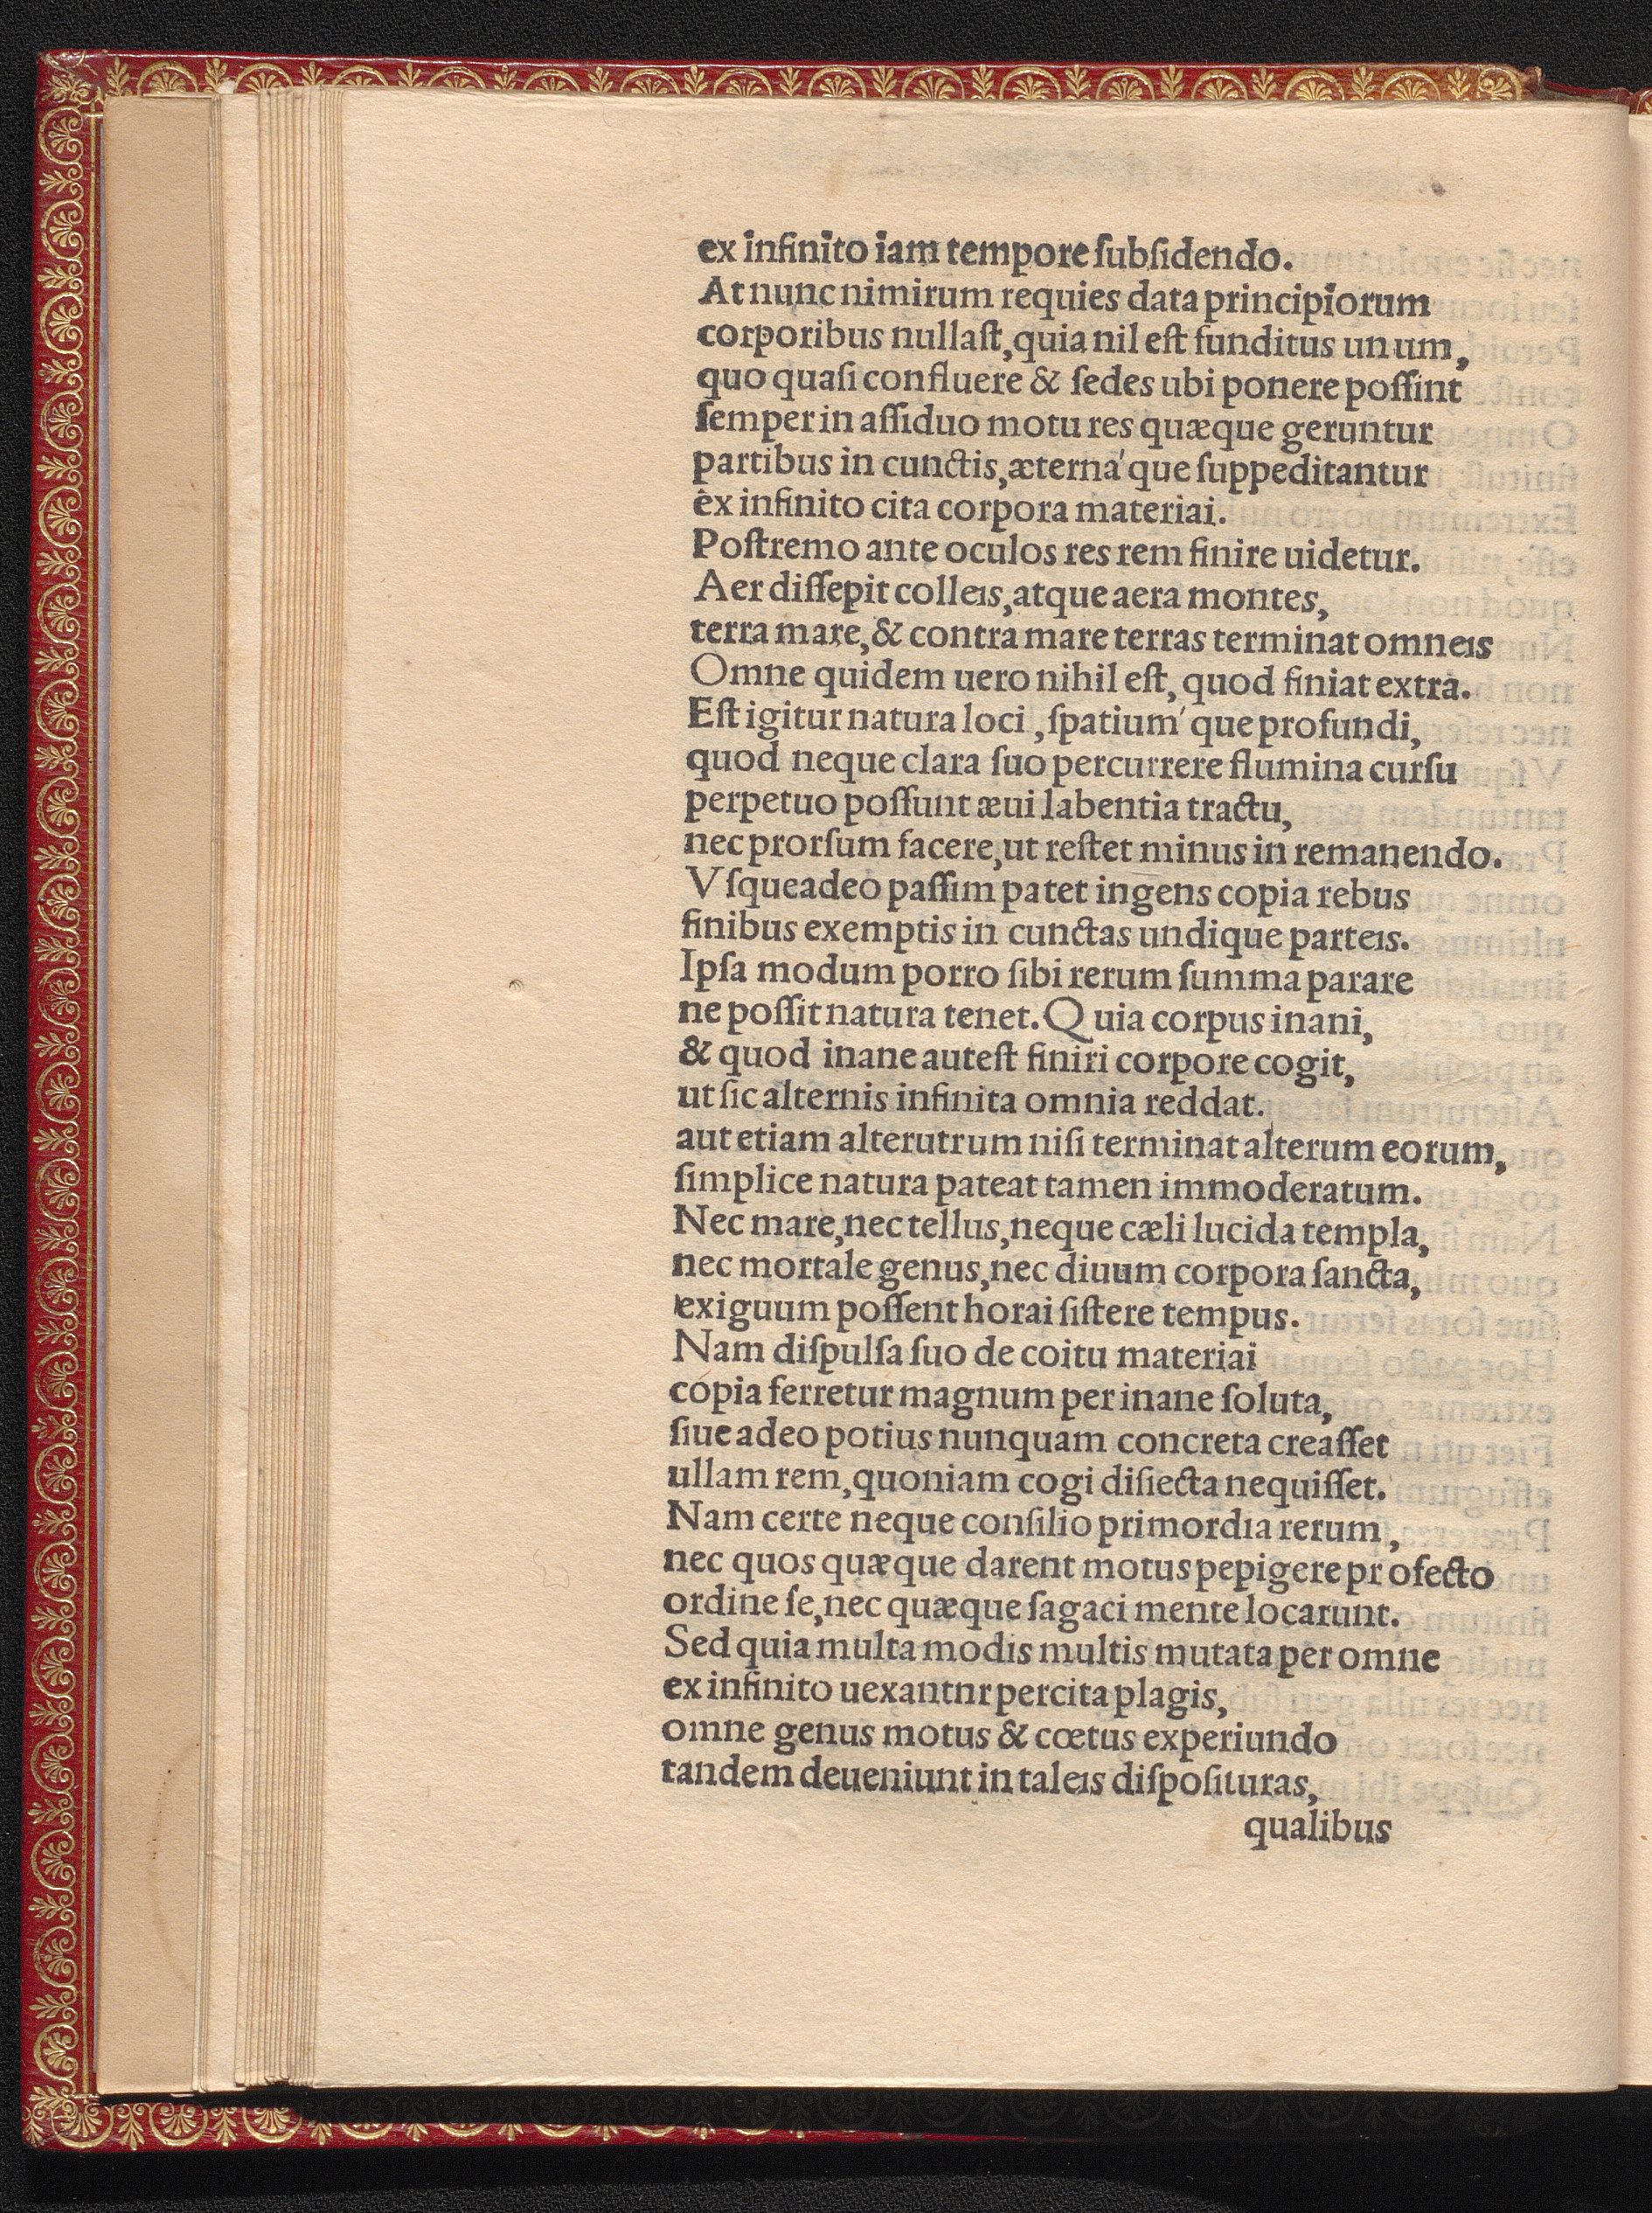 ex infinito iam tempore ſubſidendo.
At nunc nimirum requies data principiorum
corporibus nullaſt, quia nil eſt funditus unum,
quo quaſi confluere & ſedes ubi ponere poſſint
ſemper in aſſiduo motu res quæque geruntur
partibus in cunctis, æterna'que ſuppeditantur
ex infinito cita corpora materiai.
Poſtremo ante oculos res rem finire uidetur.
Aer diſſepit colleis, atque aera montes,
terra mare, & contra mare terras terminat omneis
Omne quidem uero nihil eſt, quod finiat extra.
Eſt igitur natura loci, ſpatium'que profundi,
quod neque clara ſuo percurrere flumina curſu
perpetuo poſſunt æui labentia tractu,
nec prorſum facere, ut reſtet minus in remanendo.
Vſqueadeo paſſim patet ingens copia rebus
finibus exemptis in cunctas undique parteis.
Ipſa modum porro ſibi rerum ſumma parare
ne poſſit natura tenet. Quia corpus inani,
& quod inane auteſt finiri corpore cogit,
ut ſic alternis infinita omnia reddat.
aut etiam alterutrum niſi terminat alterum eorum,
ſimplice natura pateat tamen immoderatum.
Nec mare, nec tellus, neque cæli lucida templa,
nec mortale genus, nec diuum corpora ſancta,
exiguum poſſent horai ſiſtere tempus.
Nam diſpulſa ſuo de coitu materiai
copia ferretur magnum per inane ſoluta,
ſiue adeo potius nunquam concreta creaſſet
ullam rem, quoniam cogi diſiecta nequiſſet.
Nam certe neque conſilio primordia rerum,
nec quos quæque darent motus pepigere profecto
ordine ſe, nec quæque ſagaci mente locarunt.
Sed quia multa modis multis mutata per omne
ex infinito uexantnr percita plagis,
omne genus motus & cœtus experiundo
tandem deueniunt in taleis diſpoſituras,
qualibus